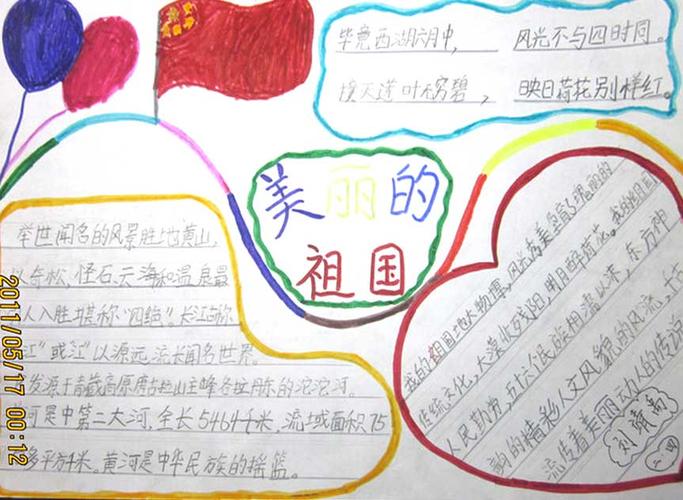 毕竟西湖六月中, 风光不与四时同。
接天莲叶无穷碧, 映日荷花别样红。
美丽的
祖国
举世闻名的风景胜地黄山,
以奇松,怪石,云海和温泉最
人入胜堪称"四绝"。长江亦称
江"或"江"以源远流长闻名世界。
发源于青藏高原唐古拉山主峰各拉丹东的沱沱河。
河是中第二大河,全长5464千米,流域面积75
多平方千米。黄河是中华民族的摇篮。
我的祖国
我的祖国地大物博,风光秀美孕育了瑰丽的
传统文化,大漠收残阳,明月醉荷花。
人民勤劳,五十六个民族相濡以沫,东方神
韵的精彩人文风貌的风流,
流传着美丽动人的传说
2011/05/17 00:12